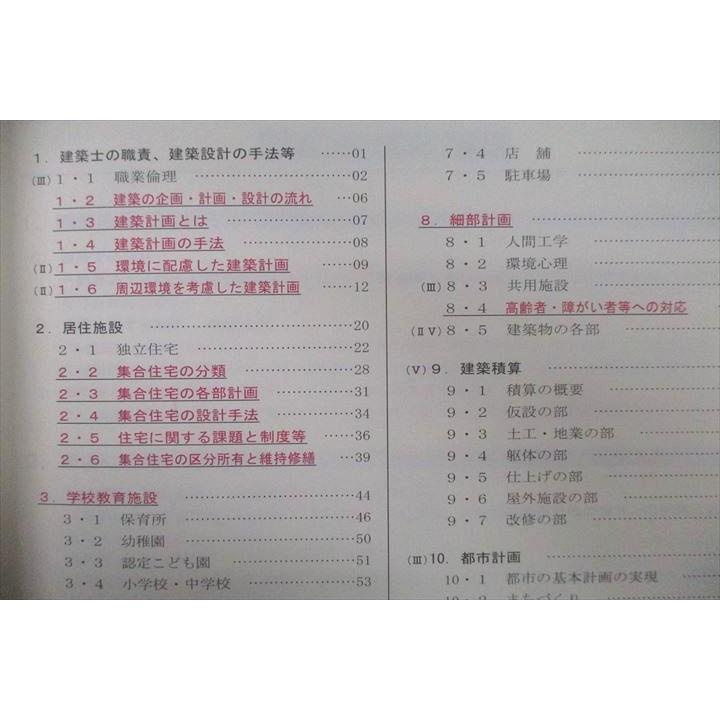 1．建築士の職責、建築設計の手法等 ……01
(Ⅲ) 1・1 職業倫理 ……………………02
1・2 建築の企画・計画・設計の流れ …06
1・3 建築計画とは ………………07
1・4 建築計画の手法 ………………08
(Ⅱ) 1・5 環境に配慮した建築計画 ………09
(Ⅱ) 1・6 周辺環境を考慮した建築計画 ……12
2．居住施設 ……………………20
2・1 独立住宅 ……………………22
2・2 集合住宅の分類 ………………28
2・3 集合住宅の各部計画 ……………31
2・4 集合住宅の設計手法 ……………34
2・5 住宅に関する課題と制度等 ………36
2・6 集合住宅の区分所有と維持修繕 …39
3．学校教育施設 ……………………44
3・1 保育所 ……………………46
3・2 幼稚園 ……………………50
3・3 認定こども園 ………………51
3・4 小学校・中学校 ………………53
7・4 店　舗 ………………
7・5 駐車場 ………………
8．細部計画 ………………
8・1 人間工学 ………………
8・2 環境心理 ………………
(Ⅲ) 8・3 共用施設 ………………
8・4 高齢者・障がい者等への対応
(ⅡⅤ) 8・5 建築物の各部 ………………
(Ⅴ) 9．建築積算 ………………
9・1 積算の概要 ………………
9・2 仮設の部 ………………
9・3 土工・地業の部 ………………
9・4 躯体の部 ………………
9・5 仕上げの部 ………………
9・6 屋外施設の部 ………………
9・7 改修の部 ………………
(Ⅲ) 10．都市計画 ………………
10・1 都市の基本計画の実現 ……
10・2 まちづくり ………………